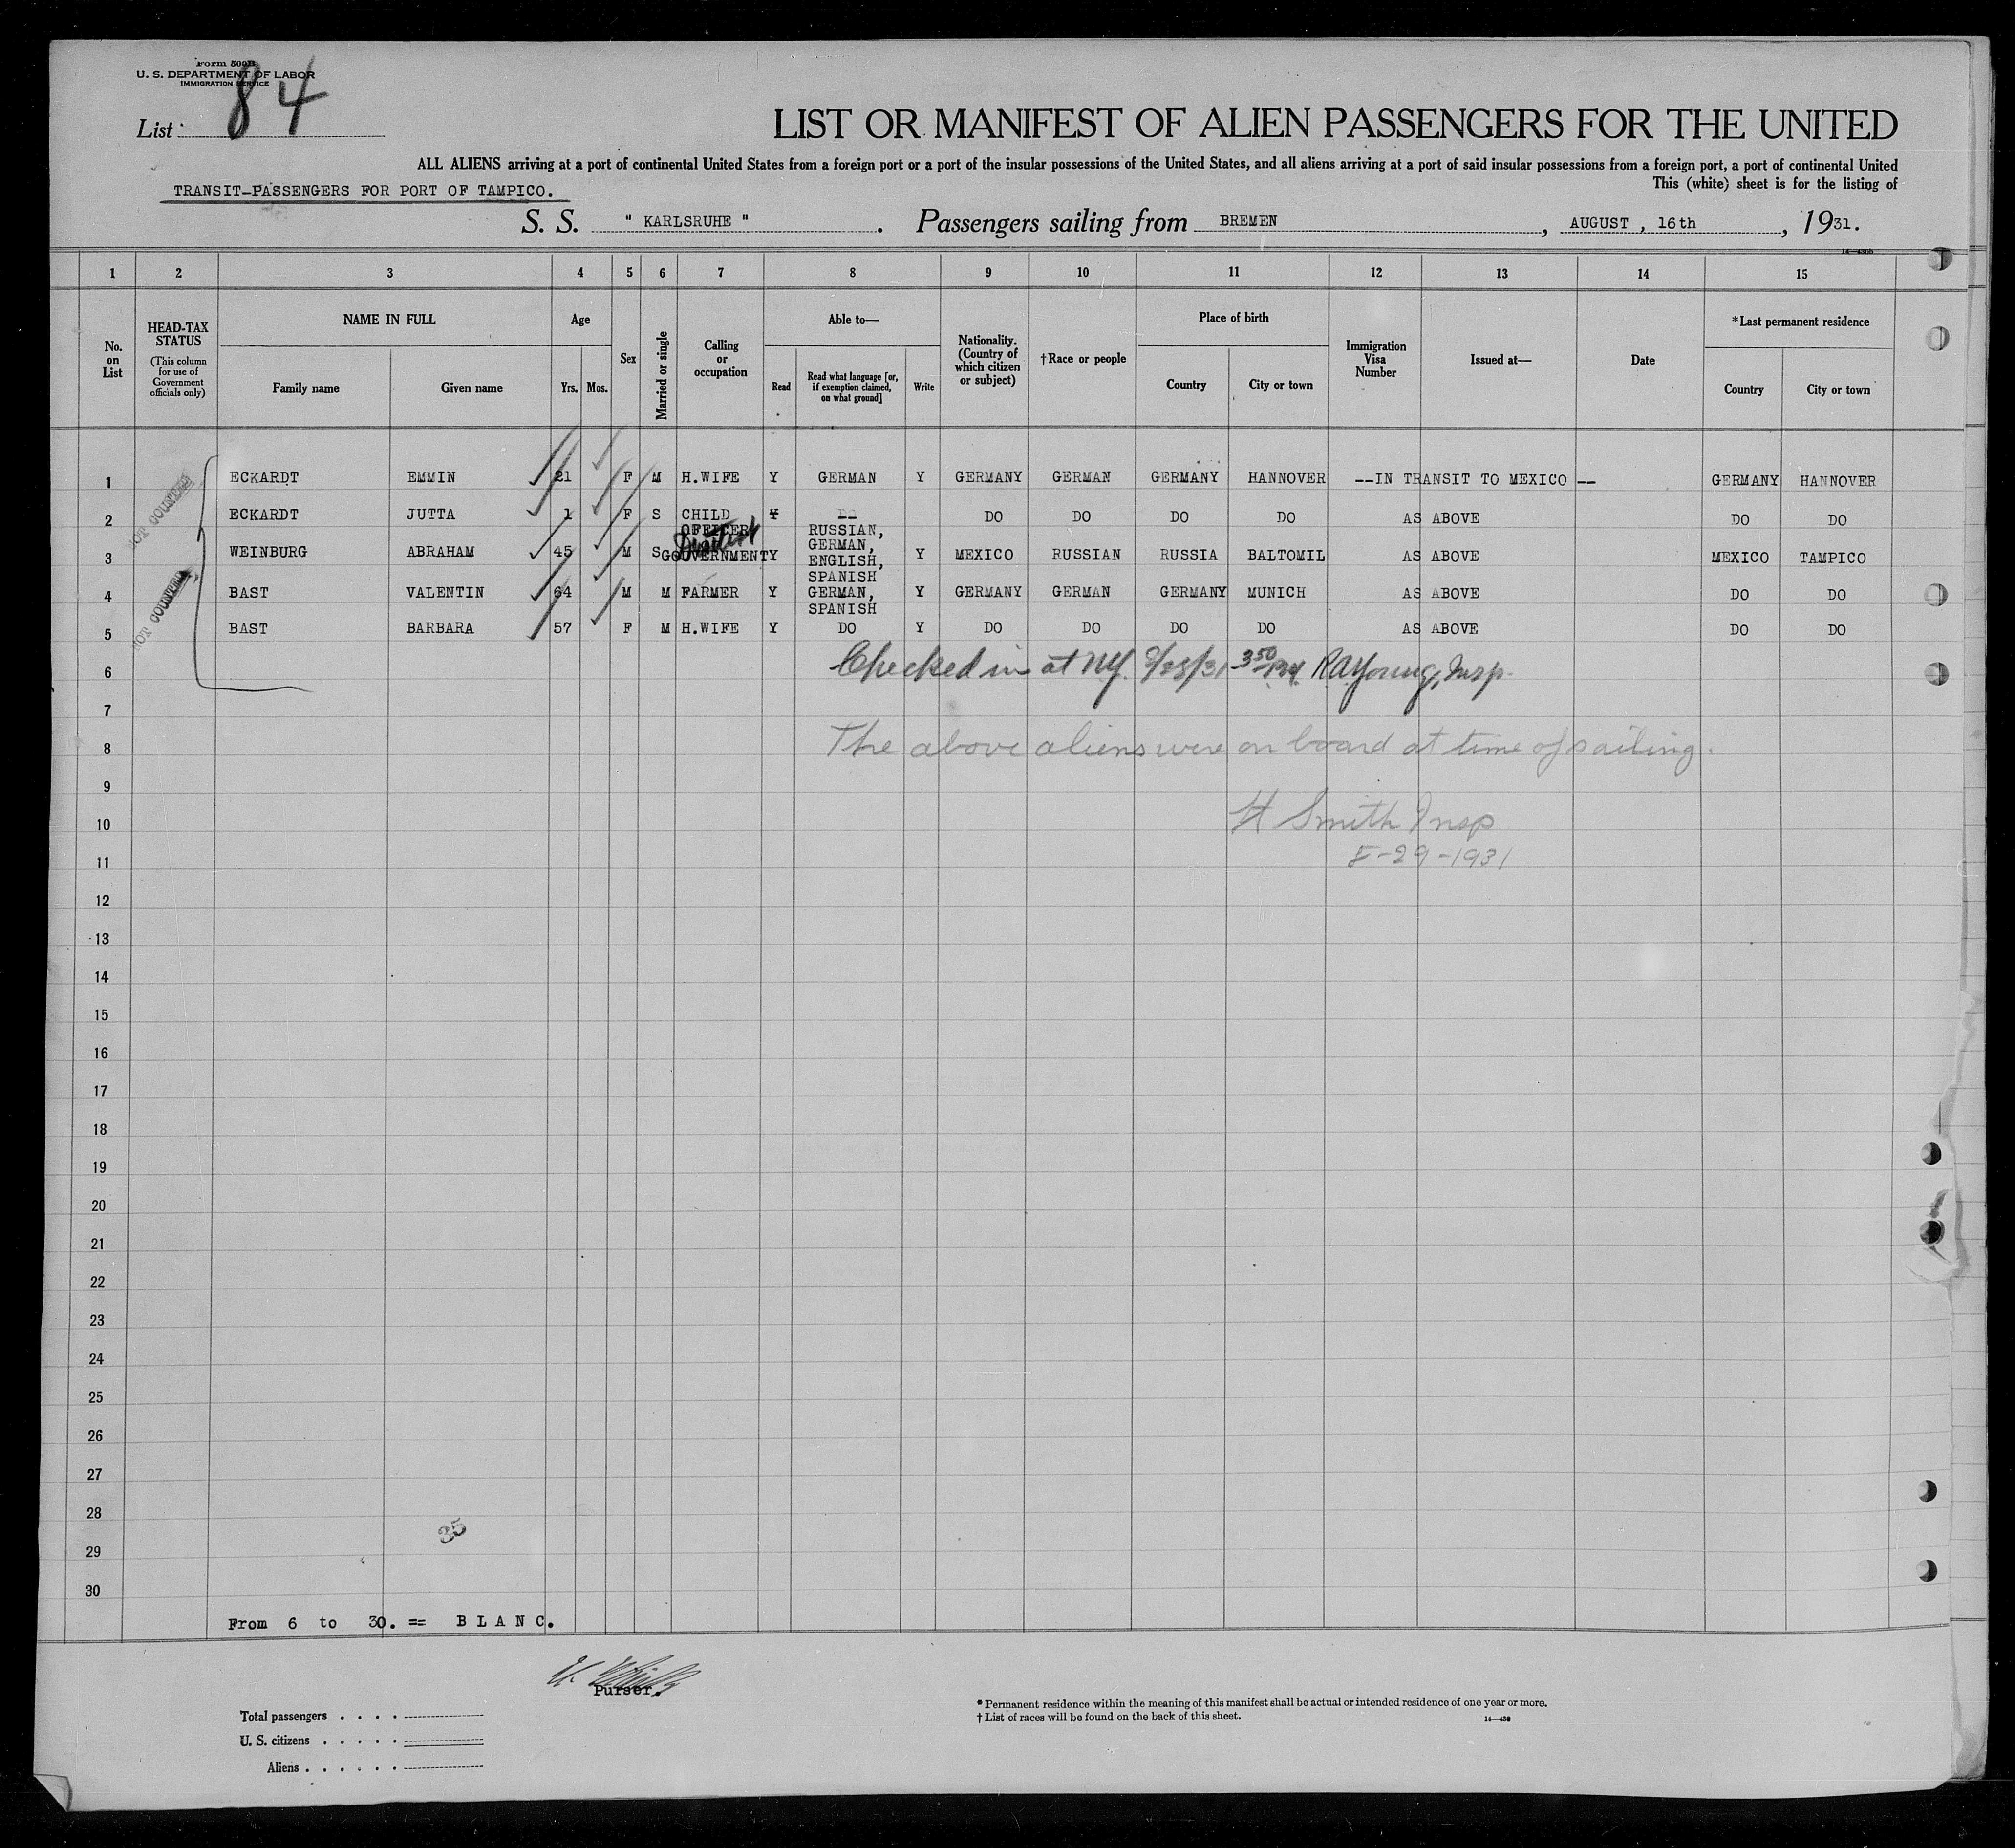 Form 500B
U. S. DEPARTMENT OF LABOR
IMMIGRATION SERVICE
List 84
LIST OR MANIFEST OF ALIEN PASSENGERS FOR THE UNITED
ALL ALIENS arriving at a port of continental United States from a foreign port or a port of the insular possessions of the United States, and all aliens arriving at a port of said insular possessions from a foreign port, a port of continental United
This (white) sheet is for the listing of
TRANSIT-PASSENGERS FOR PORT OF TAMPICO.
S. S. " KARLSRUHE ". Passengers sailing from BREMEN, AUGUST , 16th, 1931.
1 2 3 4 5 6 7 8 9 10 11 12 13 14 15
No. on List
HEAD-TAX STATUS
(This column for use of Government officials only)
NAME IN FULL
Family name
Given name
Age
Yrs. Mos.
Sex
Married or single
Calling or occupation
Able to—
Read
Read what language [or, if exemption claimed, on what ground]
Write
Nationality. (Country of which citizen or subject)
†Race or people
Place of birth
Country
City or town
Immigration Visa Number
Issued at—
Date
*Last permanent residence
Country
City or town
NOT COUNTED
NOT COUNTED
1 ECKARDT EMMIN 21 F M H.WIFE Y GERMAN Y GERMANY GERMAN GERMANY HANNOVER --IN TRANSIT TO MEXICO -- GERMANY HANNOVER
2 ECKARDT JUTTA 1 F S CHILD Y -- DO DO DO DO AS ABOVE DO DO
3 WEINBURG ABRAHAM 45 M S OFFICER GOUVERNMENT Y RUSSIAN, GERMAN, ENGLISH, SPANISH Y MEXICO RUSSIAN RUSSIA BALTOMIL AS ABOVE MEXICO TAMPICO
4 BAST VALENTIN 64 M M FARMER Y GERMAN, SPANISH Y GERMANY GERMAN GERMANY MUNICH AS ABOVE DO DO
5 BAST BARBARA 57 F M H.WIFE Y DO Y DO DO DO DO AS ABOVE DO DO
6 Checked in at NY. 8/28/31 3 50 PM. RA Young, Insp.
7
8 The above aliens were on board at time of sailing.
9
10 H Smith Insp
11 8-29-1931
12
13
14
15
16
17
18
19
20
21
22
23
24
25
26
27
28
35
29
30
From 6 to 30. == B L A N C.
Purser.
Total passengers . . . .
U. S. citizens . . . . .
Aliens . . . . . .
* Permanent residence within the meaning of this manifest shall be actual or intended residence of one year or more.
† List of races will be found on the back of this sheet.